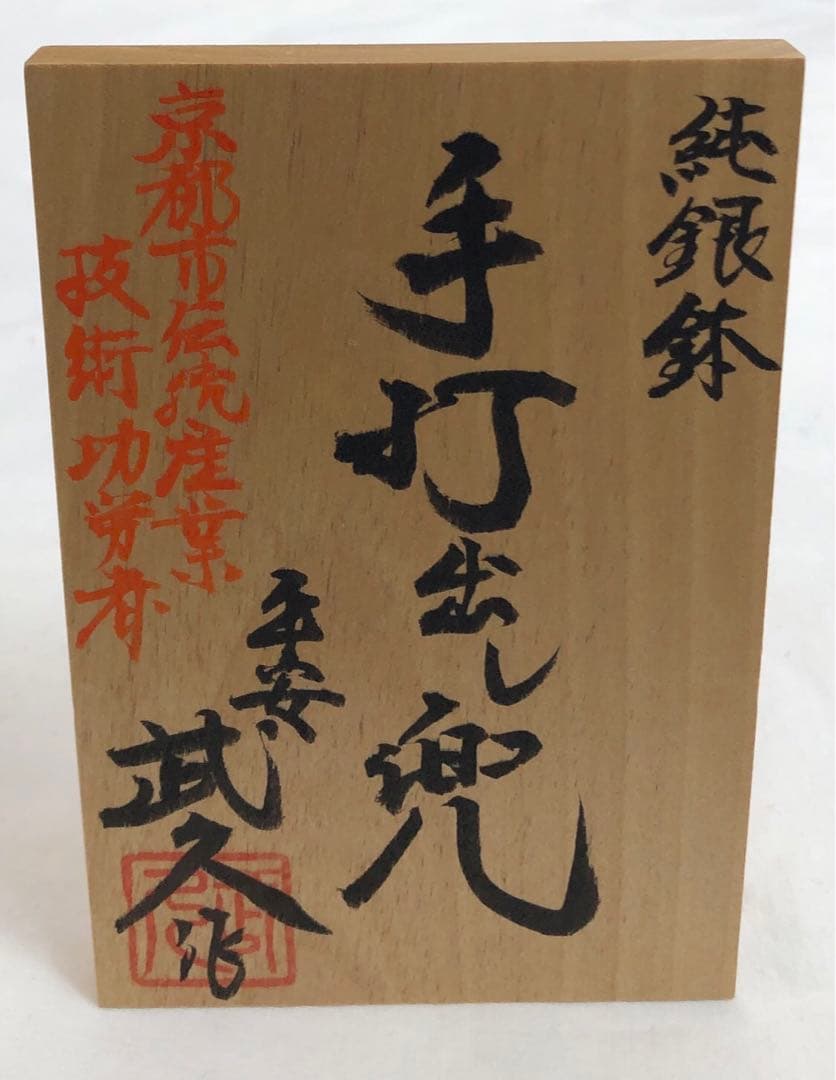 純銀鉢
手打出し兜
平安
武久作
京都市伝統産業
技術功労者